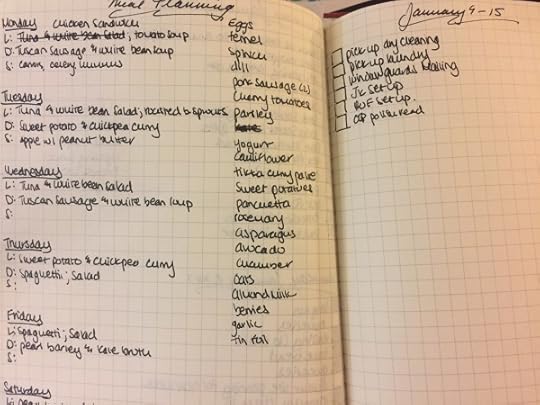 Meal Planning
Monday chicken sandwich
L: Tuna & white bean salad, tomato soup
D: Tuscan Sausage & white bean soup
S: celery hummus
Tuesday
L: Tuna & white bean Salad; roasted b sprouts
D: Sweet potato & chickpea curry
S: apple w/ peanut butter
Wednesday
L: Tuna & white bean Salad
D: Tuscan Sausage & white bean soup
S:
Thursday
L: sweet potato & chickpea curry
D: Spaghetti; Salad
S:
Friday
L: spaghetti; Salad
D: pearl barley & kale broth
S:
Saturday
Eggs
fennel
spinach
dill
pork sausage
cherry tomatoes
parsley
yogurt
cauliflower
tikka curry paste
sweet potatoes
pancetta
rosemary
asparagus
avocado
cucumber
oats
almond milk
berries
garlic
tin foil
January 9-15
pick up dry cleaning
pick up laundry
window guards mailing
set up
set up.